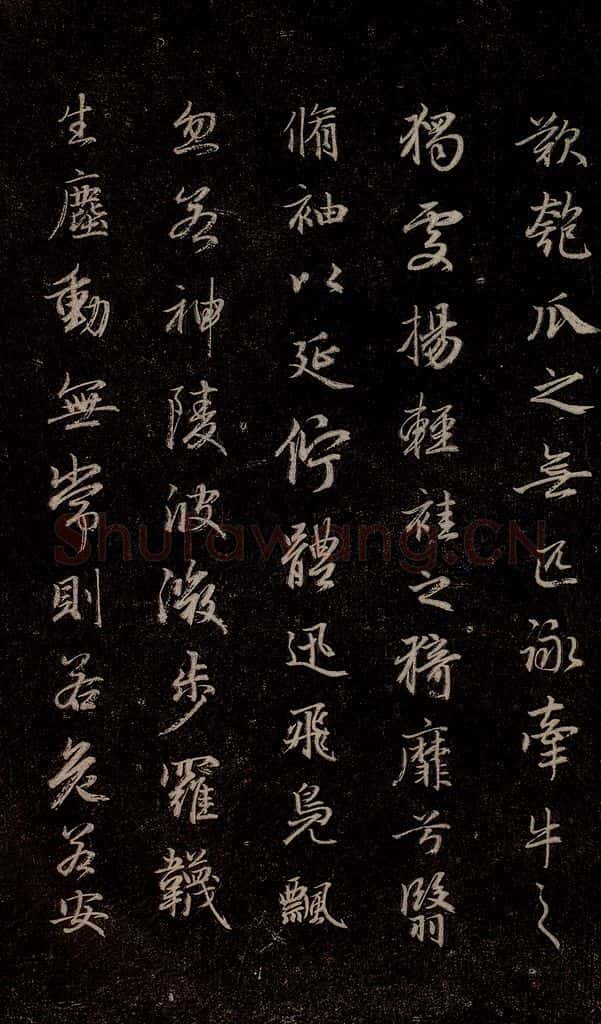 歎匏瓜之無匹詠牽牛之
獨處揚輕袿之猗靡兮翳
脩袖以延佇體迅飛鳧飄
忽若神陵波微步羅韈
生塵動無常則若危若安
Shufawang.CN